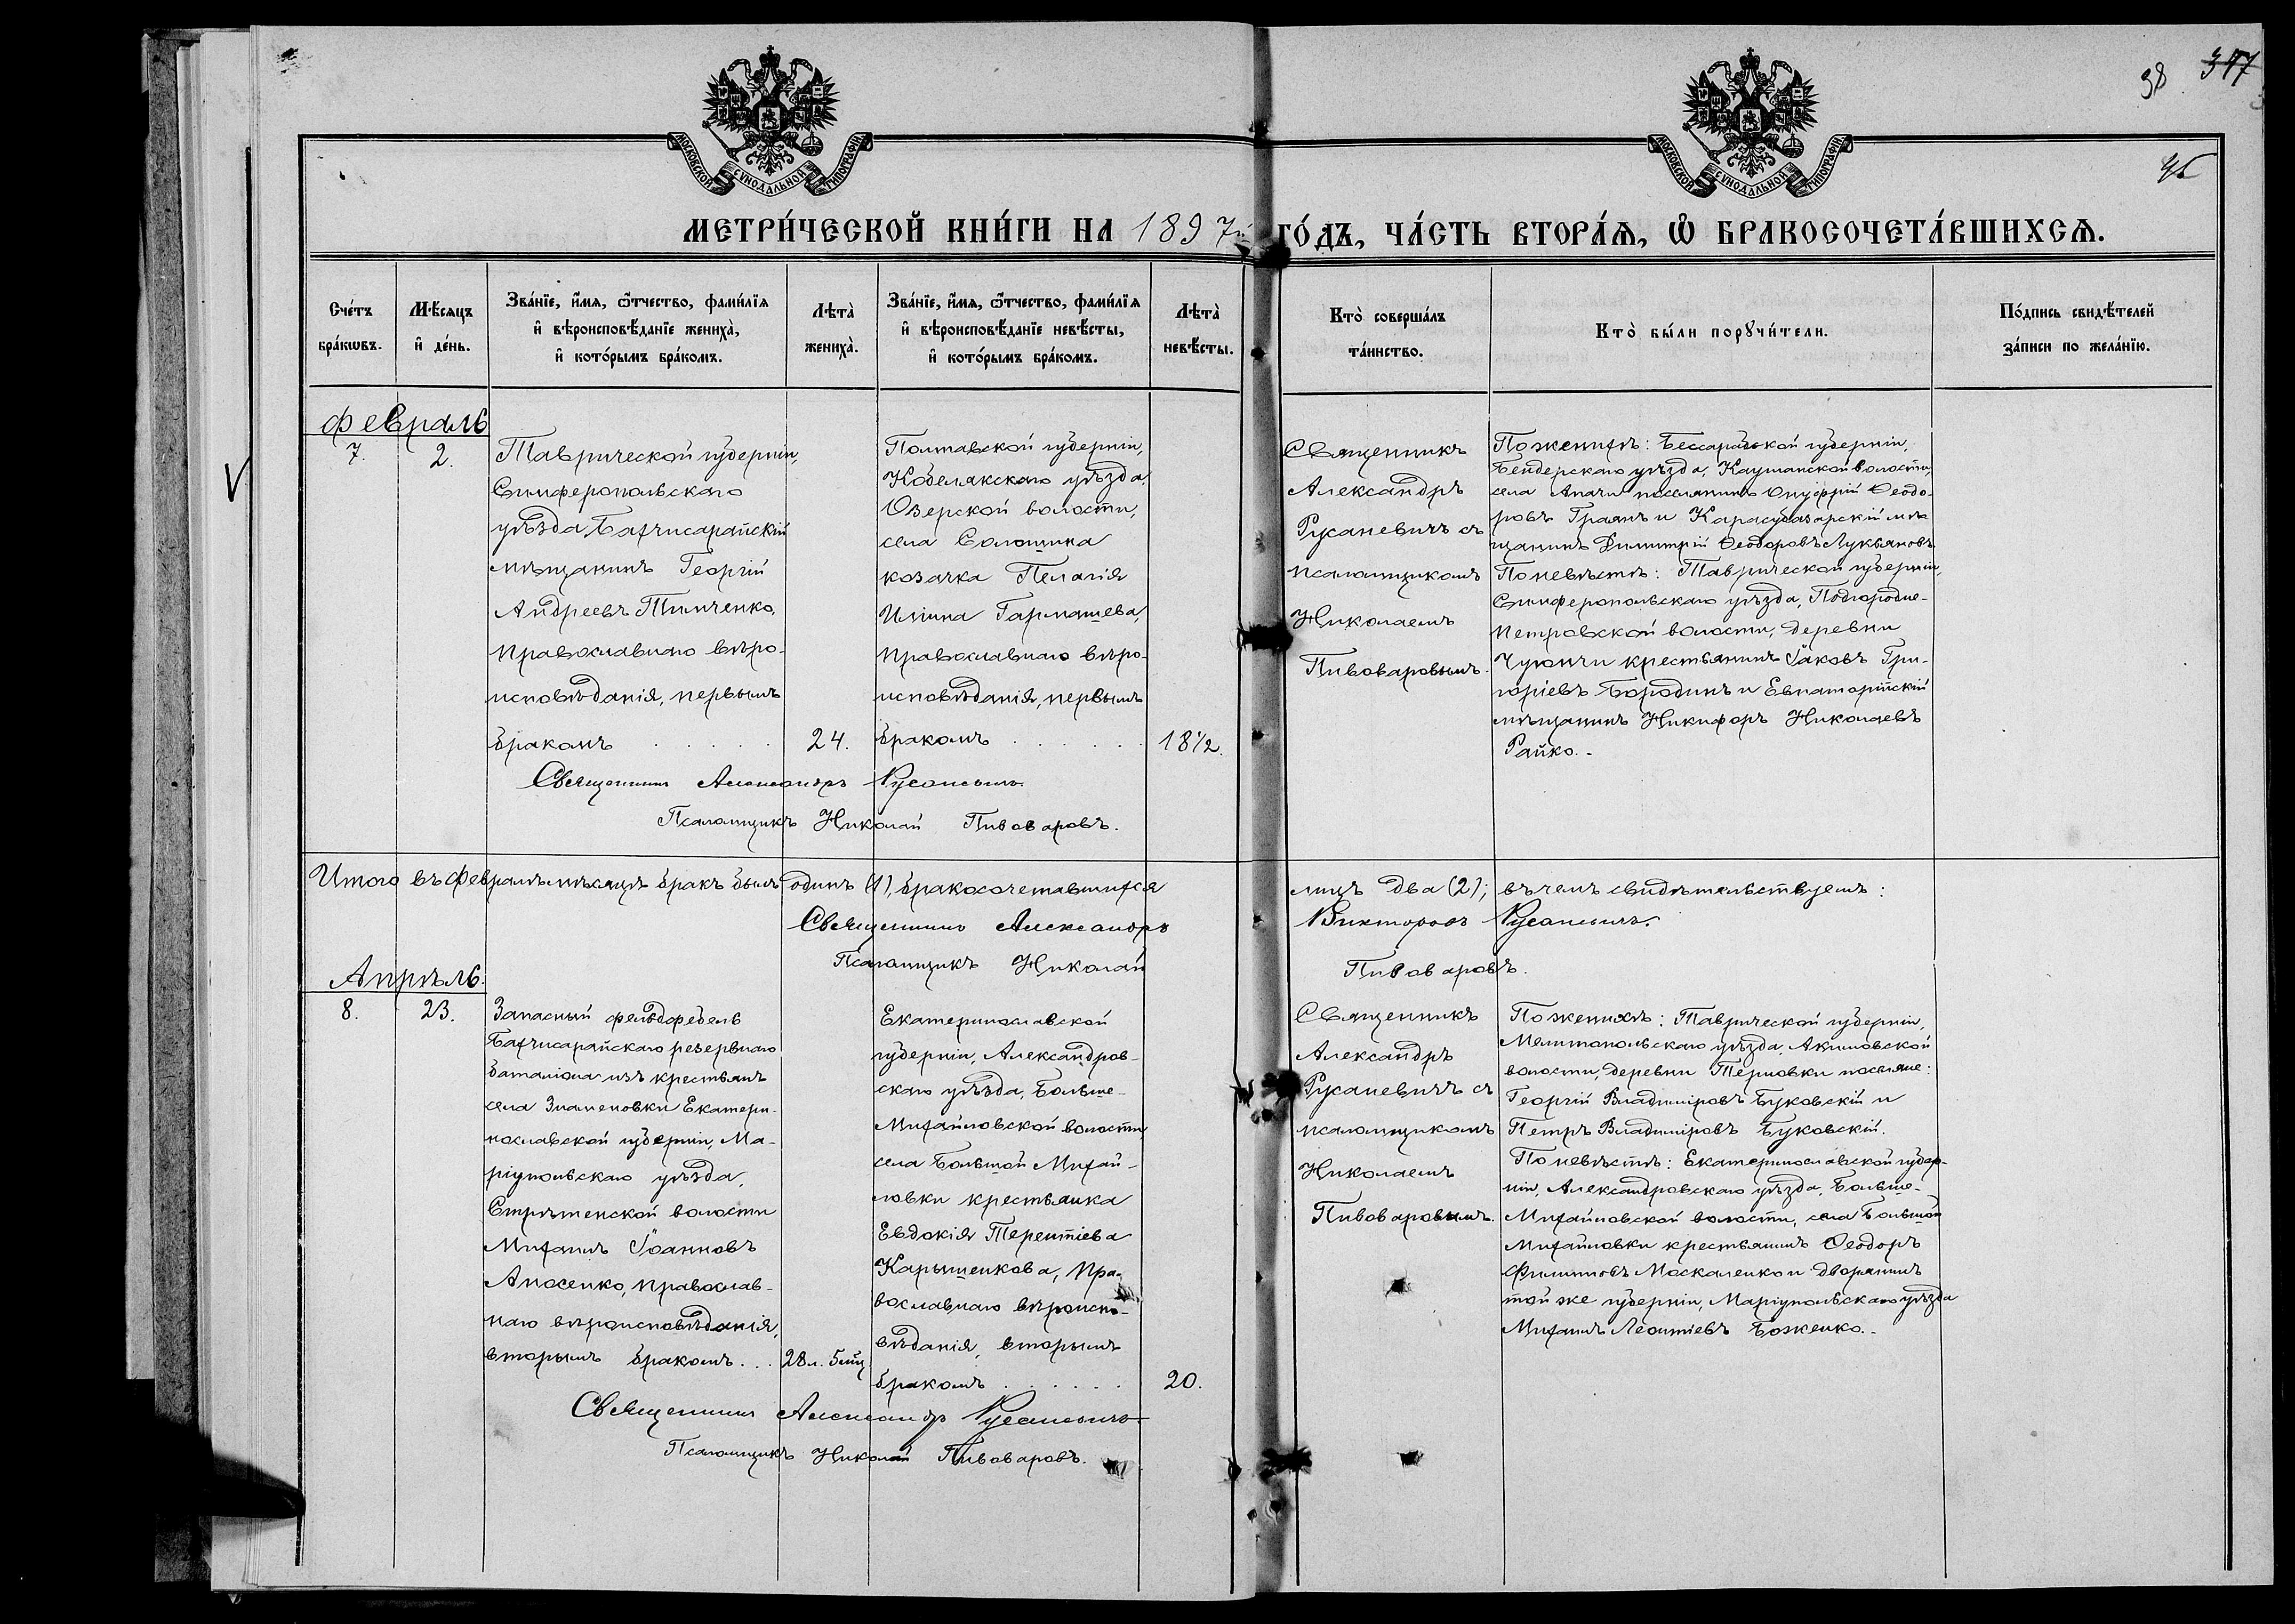 38 317
МОСКОВСКОЙ СѴНОДАЛЬНОЙ ТИПОГРАФІИ
МОСКОВСКОЙ СѴНОДАЛЬНОЙ ТИПОГРАФІИ
МЕТРИ́ЧЕСКОЙ КНИ́ГИ НА 1897й ГО́ДЪ, ЧА́СТЬ ВТОРА́Ѧ, Ѡ҆ БРАКОСОЧЕТА́ВШИХСѦ.
Сче́тъ
бра́кѡвъ.
Мѣ́сѧцъ
и҆ де́нь.
Зва́нїе, и҆́мѧ, ѻ҆́тчество, фами́лїѧ
и҆ вѣроисповѣ́данїе жениха̀,
и҆ кото́рымъ бра́комъ.
Лѣта̀
жениха̀.
Зва́нїе, и҆́мѧ, ѻ҆́тчество, фами́лїѧ
и҆ вѣроисповѣ́данїе невѣ́сты,
и҆ кото́рымъ бра́комъ.
Лѣта̀
невѣ́сты.
Кто̀ соверша́лъ
та́инство.
Кто̀ бы́ли порꙋчи́тели.
По́дпись свидѣ́телей
за́писи по жела́нїю.
Февраль
7.
2.
Таврической губерніи,
Симферопольскаго
уѣзда Бахчисарайскій
мѣщанинъ Георгій
Андреевъ Тимченко,
православнаго вѣро-
исповѣданія, первымъ
бракомъ . . . . .
24.
Полтавской губерніи,
Кобелякскаго уѣзда,
Озерской волости,
села Солошина
козачка Пелагія
Иліина Гармашева,
православнаго вѣро-
исповѣданія, первымъ
бракомъ . . . . . .
18 1/2.
Священникъ
Александръ
Русаневичъ съ
псаломщикомъ
Николаемъ
Пивоваровымъ.
По женихѣ: Бессарабской губерніи,
Бендерскаго уѣзда, Каушанской волости,
села поселянинъ Онуфрій Ѳеодо-
ровъ Граянъ и Карасубазарскій мѣ-
щанинъ Димитрій Ѳеодоровъ Лукьяновъ
По невѣстѣ: Таврической губерніи,
Симферопольскаго уѣзда, Подгородне-
петровской волости, деревни
Чуюнчи крестьянинъ Іаковъ Гри-
горіевъ Бородинъ и Евпаторійскій
мѣщанинъ Никифоръ Николаевъ
Райко.-
Священникъ Александръ Русаневичъ.
Псаломщикъ Николай Пивоваровъ.
Итого въ Февралѣ мѣсяцѣ бракъ былъ одинъ (1), бракосочетавшихся лицъ два (2); въ чемъ свидѣтельствуемъ:
Священникъ Александръ Викторовъ Русаневичъ.
Псаломщикъ Николай Пивоваровъ.
Апрѣль:
8.
23.
Запасный фельдфебель
Бахчисарайскаго резервнаго
баталіона изъ крестьянъ
села Знаменовки Екатери-
нославской губерніи, Ма-
ріупольскаго уѣзда,
Стрѣтенской волости
Михаилъ Іоанновъ
Апосенко, православ-
наго вѣроисповѣданія,
вторымъ бракомъ. . .
28 л. 5 мѣц
Екатеринославской
губерніи, Александров-
скаго уѣзда, Больше-
Михайловской волости
села Большой Михай-
ловки крестьянка
Евдокія Терентіева
Карышенкова, пра-
вославнаго вѣроиспо-
вѣданія, вторымъ
бракомъ . . . . . .
20.
Священникъ
Александръ
Русаневичъ съ
псаломщикомъ
Николаемъ
Пивоваровымъ.
По женихѣ: Таврической губерніи,
Мелитопольскаго уѣзда, Акимовской
волости, деревни Терновки поселяне:
Георгій Владиміровъ Буковскій и
Петръ Владиміровъ Буковскій.
По невѣстѣ: Екатеринославской губер-
ніи, Александровскаго уѣзда, Больше-
Михайловской волости, села Большой
Михайловки крестьянинъ Ѳеодоръ
Филипповъ Москаленко и дворянинъ
той же губерніи, Маріупольскаго уѣзда
Михаилъ Леонтіевъ Боженко.-
Священникъ Александръ Русаневичъ
Псаломщикъ Николай Пивоваровъ.